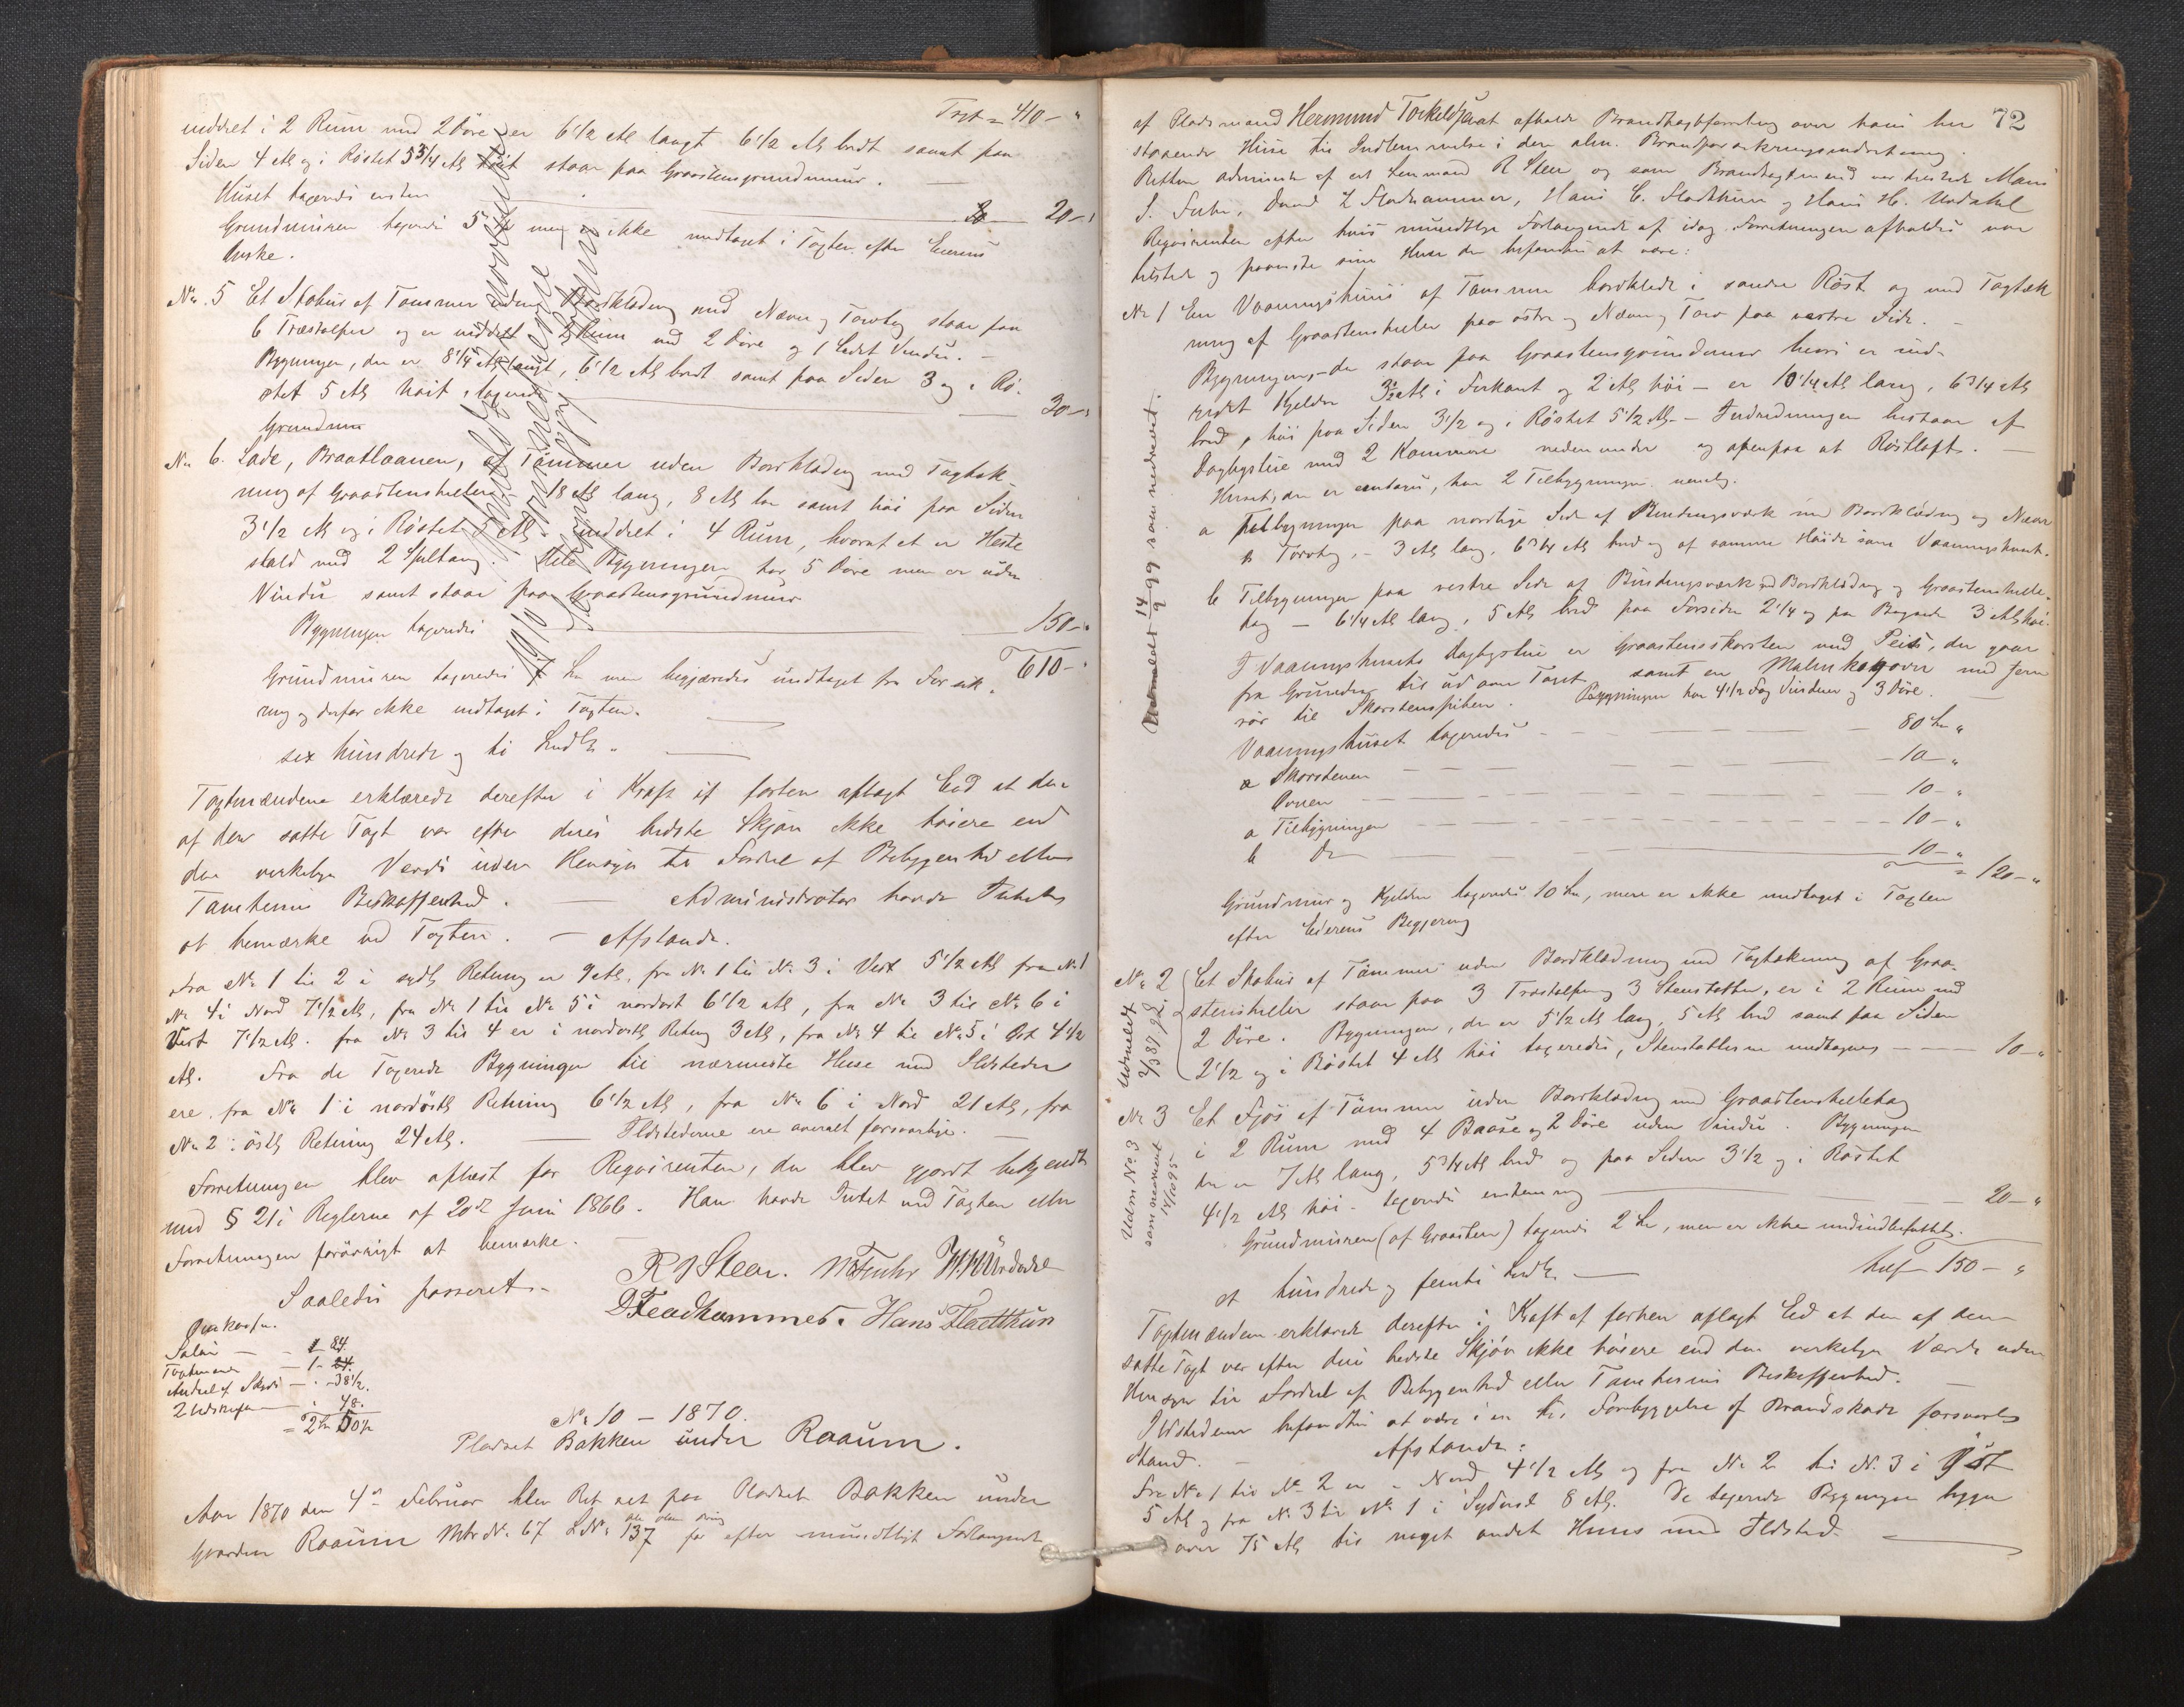 Tagt = 410 – "
inddelt i 2 Rum med 2 Døre er 6 1/2 Al langt 6 1/2 Al bredt samt paa
Siden 4 Al og i Röstet 5 3/4 Al höit staar paa Graastensgrundmuur.
Huset taxeredes ensten 20 –
Grundmuren taxeredes 5 men er ikke medtaget i Taxten efter Eierens
Önske.
No. 5 Et Skabus af Tømmer uden Bordklædning med Næver og Torvtag staar paa
6 Træstolper og er inddelt 2 Rum med 2 Døre og 1 Vindu. –
Bygningen, der er 8 1/4 Al langt, 6 1/2 Al bredt samt paa Siden 3 og i Rö-
stet 5 Al höit, taxeredes 30 –
Grundmu
No 6. Lade, Braatlaanen, af Tömmer uden Bordklædning med Tagtæk-
ning af Graastensheller. 18 Al lang, 8 Al br samt höi paa Siden
3 1/2 Al og i Röstet 5 Al. inddelt i 4 Rum, hvoraf et er Heste
stald med 2 Spiltoug. Hele Bygningen har 5 Döre men er uden
Vindu samt staar paa Graastensgrundmuur
Bygningen taxeredes 150 –
610 –
Grundmuren taxeredes 7 men begjæredes undtaget fra Forsik-
ring og derfor ikke medtaget i Taxten.
sex hundrede og ti
Taxtmændene erklærede derefter i Kraft af forhen aflagt Eed at den
af dem satte Taxt var efter deres bedste Skjön ikke höiere end
den virkelige Verdi uden Hensyn til Fordel af Bebyggenhed eller
Tomtens Beskaffenhed. – Administrator havde Intet
at bemærke ved Taxten. – Afstande.
Fra No 1 til 2 i sydl Retning er 9 Al. fra No 1 til No 3 i Vest 5 1/2 Al fra No 1
No 4 i Nord 7 1/2 Al, fra No 1 til No 5 i nordost 6 1/2 Al, fra No 3 til No 6 i
Vest 7 1/2 Al. fra No 3 til 4 er i nordostl Retning 3 Al, fra No 4 til No 5 i Öst 4 1/2
Al. Fra de Taxerede Bygninger til nærmeste Huse med Ildsteder
ere fra No 1 i nordöstl Retning 6 1/2 Al, fra No 6 i Nord 21 Al, fra
No 2 i östl Retning 24 Al. – Ildstederne ere overalt forsvarlige. –
Forretningen blev oplæst for Reqvirenten, der blev gjordt bekjendt
med § 21 i Reglerne af 20de Juni 1866. Han havde Intet ved Taxten eller
Forretningen forövrigt at bemærke.
Saaledes passeret.
R Steen. M Fuhr H. H Urdahl
D Fladhammer. Hans Fladthun
Salær – 84
Taxtmænd – 1 – 24
Andeel af Skyds – 38 1/2
2 Udskrifter 48
= 2 50
No 10 – 1870.
Pladset Bakken under Raaum.
Aar 1870 den 4de Februar blev Ret sat paa Pladset Bakken under
Gaarden Raaum Mtr No. 67 LNo 137 for efter mundtligt Forlangende
72
af Pladsmand Hermund Torkeldsen at afholde Brandtaxtforretning over hans her
staaende Huse til Indlemmelse i den alm. Brandforsikringsindretning.
Retten administ af const Lensmand R Steen og som Brandtaxtmænd var tilstede Mons
S. Fuhr, David L Fladhammer, Hans C. Fladthun og Hans H. Urdahl
Reqvirenten efter hvis mundtlige Forlangende af idag Forretningen afholdes var
tilstede og paaviste sine Huse der befandtes at være:
No 1 En Vaaningshuus af Tømmer bordklædt i søndre Röst og med Tagtæk
ning af Graastensheller paa östre og Næver og Torv paa vestre Side. –
Bygningen, – der staar paa Graastensgrundmuur hvori er ind-
redet Kjelder 3 1/2 Al i Firkant og 2 Al höi – er 10 1/4 Al lang, 6 3/4 Al
bred, höi paa Siden 3 1/2 og i Röstet 5 1/2 Al. – Indredningen bestaar af
Dagligstue med 2 Kammere nedenunder og ovenpaa et Röstloft. –
Huset, der er , har 2 Tilbygninger nemlig.
a Tilbygningen paa nordlige Side af Bindingsværk med Bordklædning og Næver
& Torvtag, – 3 Al lang, 6 3/4 Al bred og af samme Höide som Vaaningshuset.
b Tilbygningen paa vestre Side af Bindingsværk med Bordklædning og Graastenshelle-
tag – 6 1/4 Al lang, 5 Al bred paa Forsiden 2 1/4 og paa Bagside 3 Al höi.
I Vaaningshusets Dagligstue er Graastensskorsten med Peis, der gaar
fra Grunden til ud over Taget samt en Malmkogovn med Jern
rör til Skorstenspiben. Bygningen har 4 1/2 Fag Vinduer og 3 Döre.
Vaaningshuset taxeredes 80 "
Skorstenen 10 – "
Ovnen 10 – "
a Tilbygningen 10 – "
b Do 10 – "
= 120 – "
Grundmur og Kjelder taxeredes 10, men er ikke medtaget i Taxten
efter Eierens Begjæring
No 2 Et Skabus af Tömmer uden Bordklædning med Tagtækning af Graa-
stensheller staar paa 3 Træstolper og 3 Stenstøtter, er i 2 Rum med
2 Döre. Bygningen, der er 5 1/2 Al lang, 5 Al bred samt paa Siden
2 1/2 og i Röstet 4 Al höi taxeredes, Stenstøtterne undtagne 10 – "
No 3 Et Fjös af Tömmer uden Bordklædning med Graastenshelletag
i 2 Rum med 4 Baase og 2 Döre uden Vindu. Bygningen
der er 7 Al lang, 5 3/4 Al bred og paa Siden 3 1/2 og i Röstet
4 1/2 Al höi – taxeredes 20 – "
Grundmuren (af Graasten) taxeredes 2, men er ikke
150 – "
et hundrede og femti
Taxtmændene erklærede derefter i Kraft af forhen aflagt Eed at den af dem
satte Taxt var efter deres bedste Skjön ikke höiere end den virkelige Værdi uden
Hensyn til Fordel af Bebyggenhed eller Tomtens Beskaffenhed. –
Ildstederne befandtes at være i en til Forebyggelse af Brandskade forsvarlig
Stand. – Afstande:
Fra No 1 til No 2 er i Nord 4 1/2 Al og fra No 2 til No. 3 i Öst
5 Al og fra No 3 til No 1 i Sydvest 8 Al. De taxerede Bygninger ligger
over 75 Al til noget andet Huus med Ildsted. –
Udmeldt 14/9 99 som nedrevet.
Udmeldt
Udm No. 3
som nedrevet
14/10 95